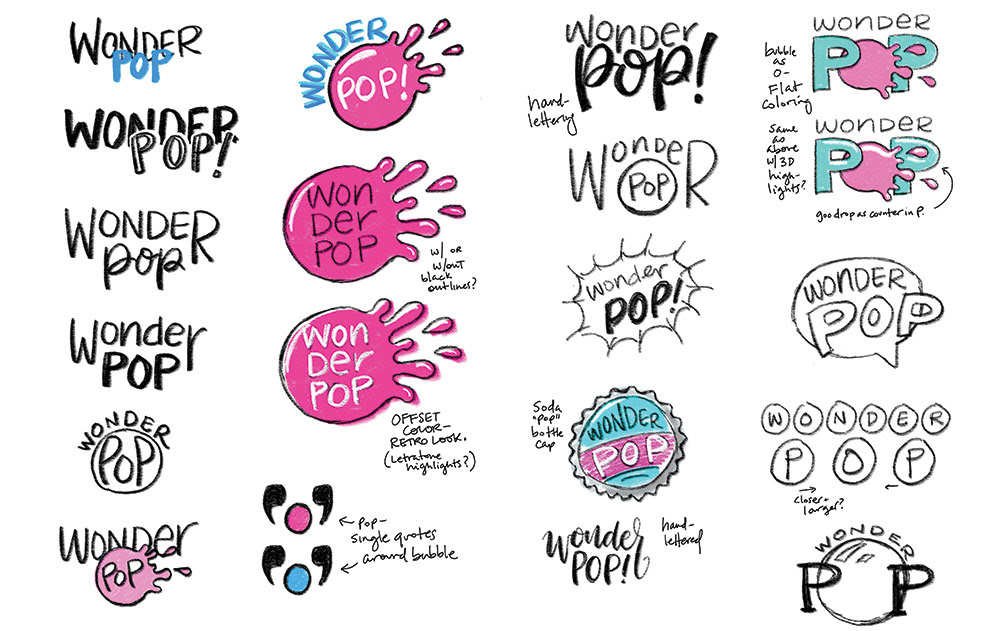 WONDER
POP
WONDER
POP!
WONDER
pop
Wonder
POP
WONDER
POP
Wonder
POP
WONDER
POP!
Won
Der
POP
w/ or
w/out
black
outlines?
Won
Der
POP
OFFSET
COLOR-
RETRO LOOK.
(Letratone
highlights?)
❜ ❜
← Pop-
single quotes
around bubble
❜ ❜
←
Wonder
pop!
hand-
lettering
WonDeR
POP
wonder
POP!
Soda
"pop"
bottle
cap
WONDER
POP
wonder
POP!
hand-
lettered
WONDER
POP
bubble
as
O-
Flat
coloring
WONDER
POP
same
as
above
w/3D
high-
lights?
goo drop as counter in P.
WONDER
POP
WONDER
POP
→ ←
closer+
larger?
WONDER
P P